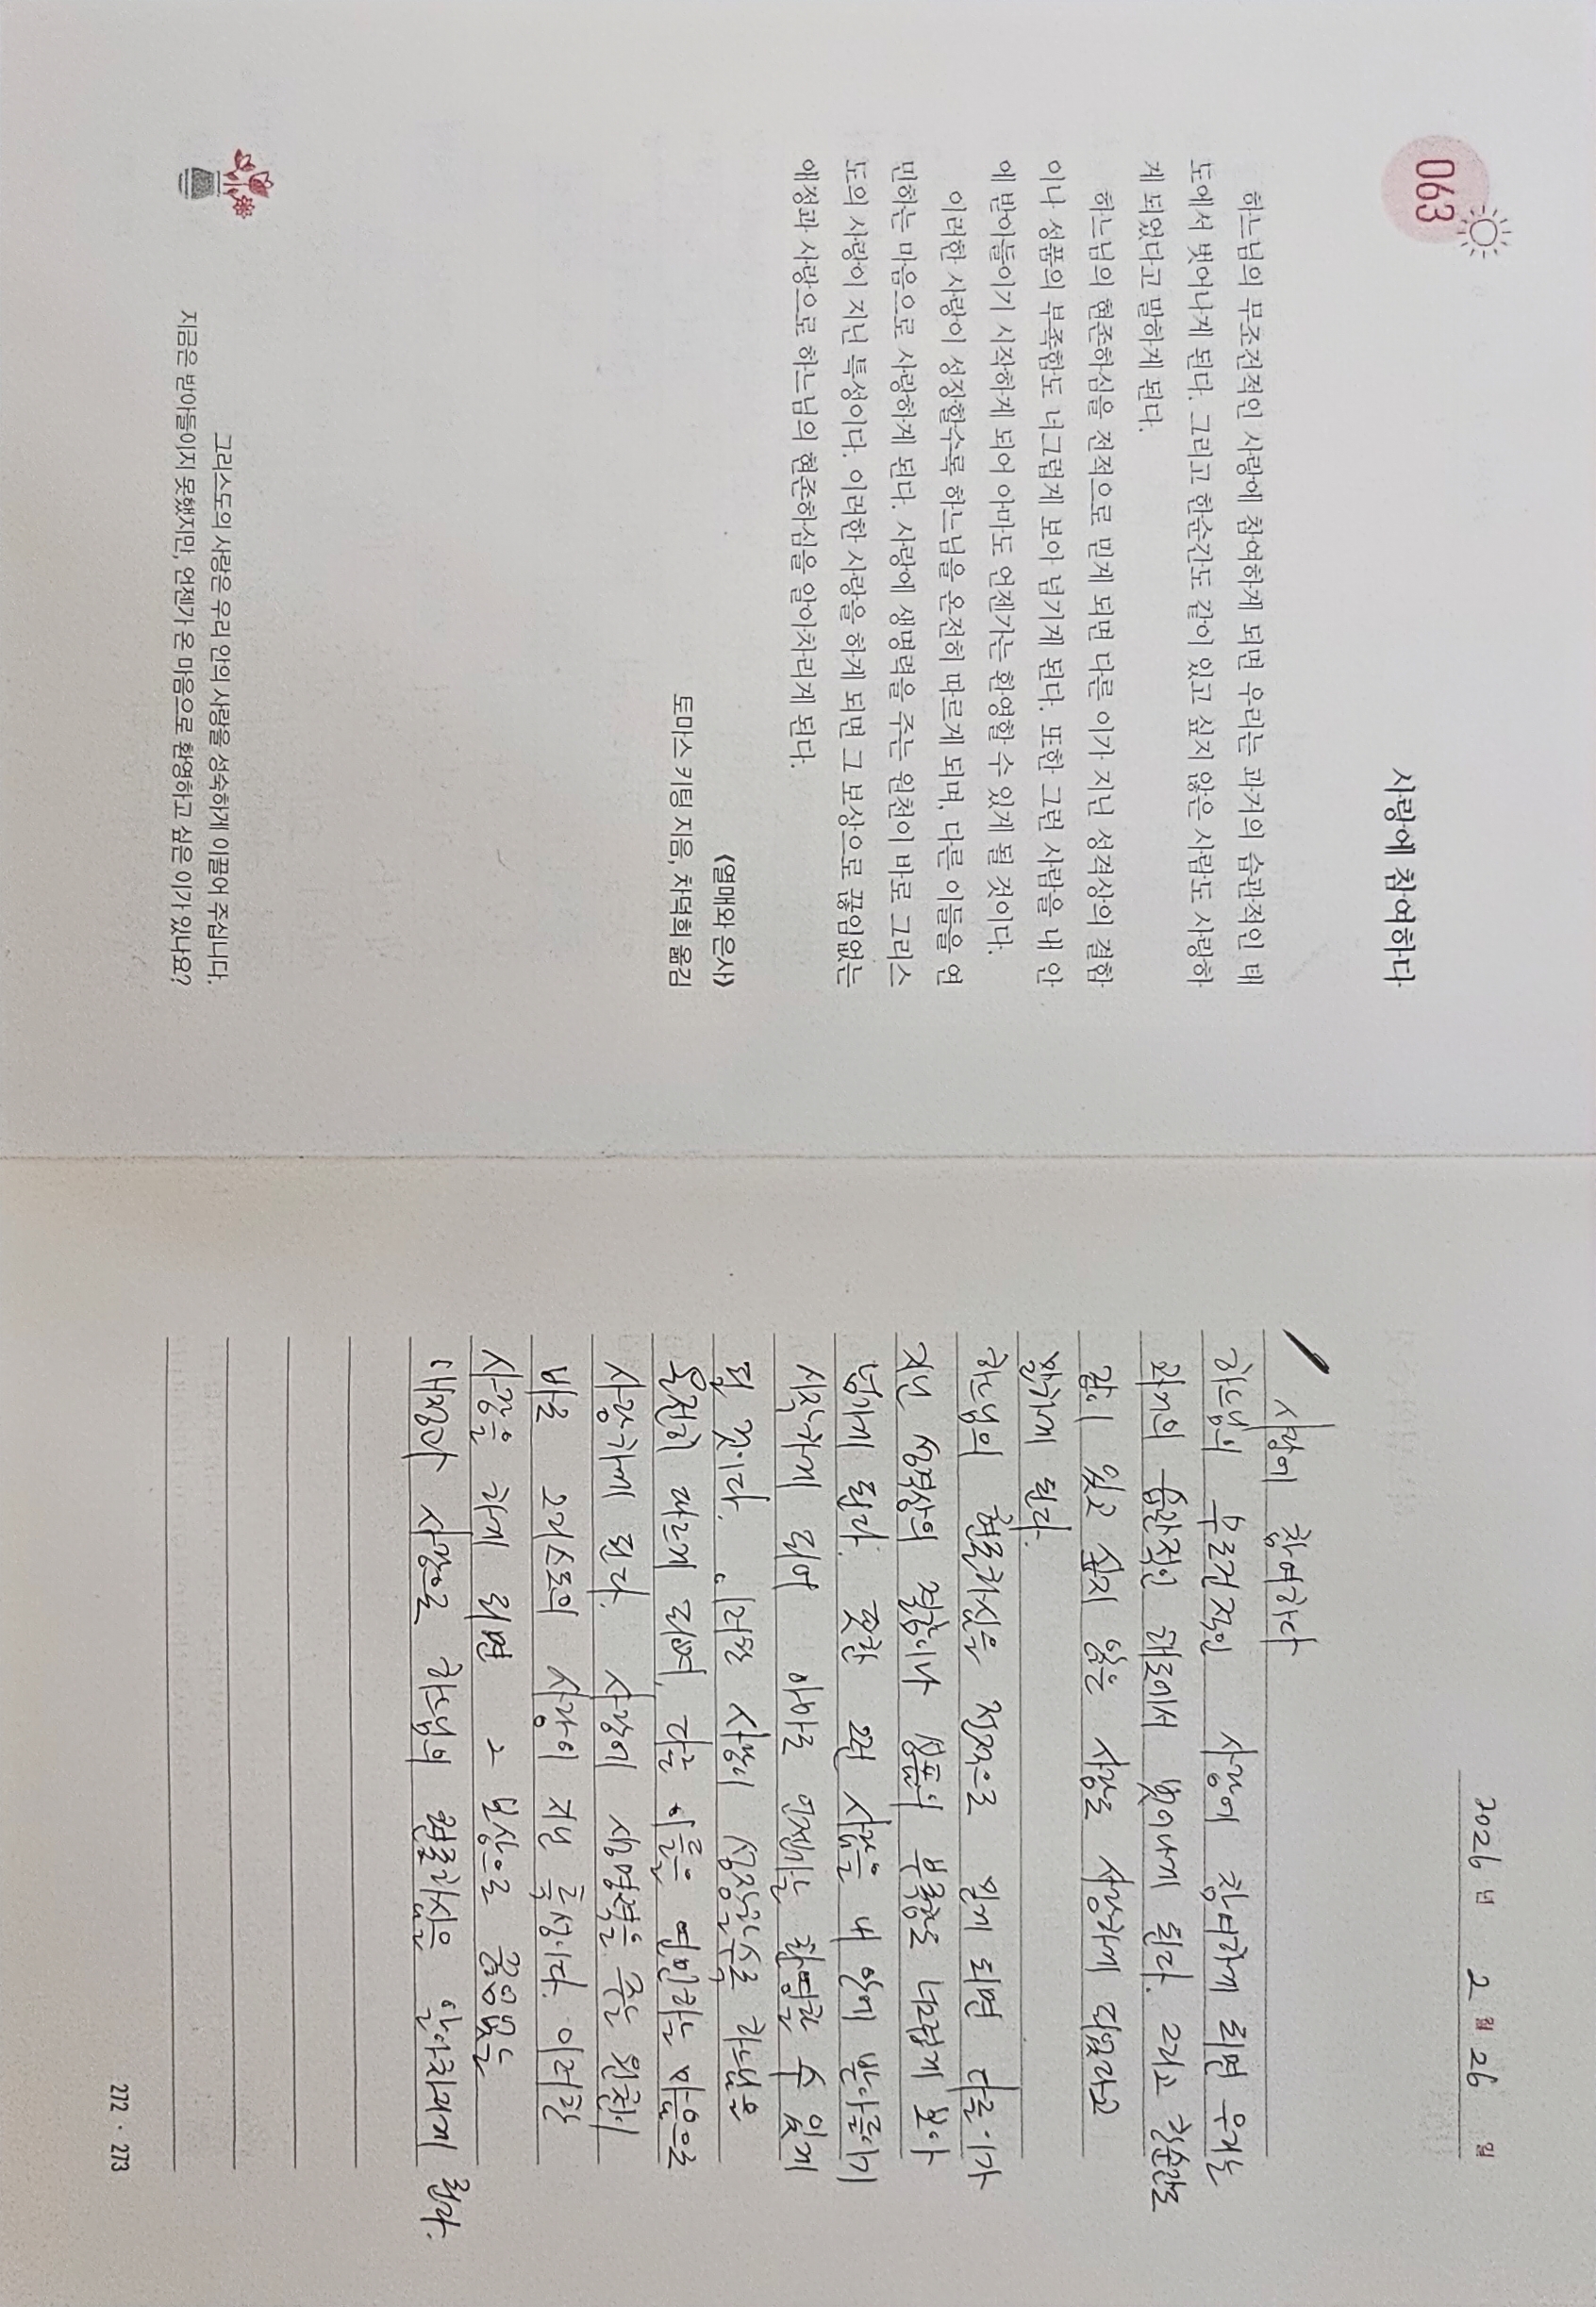 063
사랑에 참여하다
하느님의 무조건적인 사랑에 참여하게 되면 우리는 과거의 습관적인 태
도에서 벗어나게 된다. 그리고 한순간도 같이 있고 싶지 않은 사람도 사랑하
게 되었다고 말하게 된다.
하느님의 현존하심을 전적으로 믿게 되면 다른 이가 지닌 성격상의 결함
이나 성품의 부족함도 너그럽게 보아 넘기게 된다. 또한 그런 사람을 내 안
에 받아들이기 시작하게 되어 아마도 언젠가는 환영할 수 있게 될 것이다.
이러한 사랑이 성장할수록 하느님을 온전히 따르게 되며, 다른 이들을 연
민하는 마음으로 사랑하게 된다. 사랑에 생명력을 주는 원천이 바로 그리스
도의 사랑이 지닌 특성이다. 이러한 사랑을 하게 되면 그 보상으로 끊임없는
애정과 사랑으로 하느님의 현존하심을 알아차리게 된다.
《열매와 은사》
토마스 키팅 지음, 차덕희 옮김
그리스도의 사랑은 우리 안의 사랑을 성숙하게 이끌어 주십니다.
지금은 받아들이지 못했지만, 언젠가 온 마음으로 환영하고 싶은 이가 있나요?
2026 년 2 월 26 일
사랑에 참여하다
하느님의 무조건적인 사랑에 참여하게 되면 우리는
과거의 습관적인 태도에서 벗어나게 된다. 그리고 한순간도
같이 있고 싶지 않은 사람도 사랑하게 되었다고
말하게 된다.
하느님의 현존하심을 전적으로 믿게 되면 다른 이가
지닌 성격상의 결함이나 성품의 부족함도 너그럽게 보아
넘기게 된다. 또한 그런 사람을 내 안에 받아들이기
시작하게 되어 아마도 언젠가는 환영할 수 있게
될 것이다. 이러한 사랑이 성장할수록 하느님을
온전히 따르게 되며, 다른 이들을 연민하는 마음으로
사랑하게 된다. 사랑에 생명력을 주는 원천이
바로 그리스도의 사랑이 지닌 특성이다. 이러한
사랑을 하게 되면 그 보상으로 끊임없는
애정과 사랑으로 하느님의 현존하심을 알아차리게 된다.
272 · 273